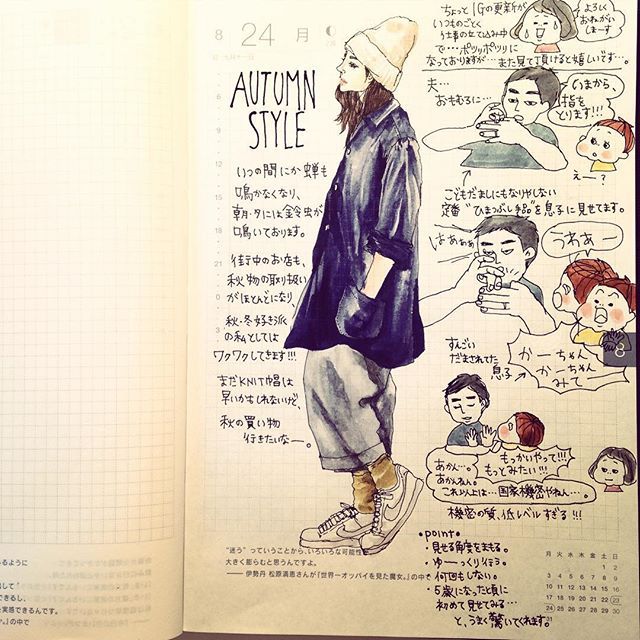 8 24 月
AUTUMN
STYLE
いつの間にか蝉も
鳴かなくなり、
朝・夕には鈴虫が
鳴いております。
街中のお店も、
秋物の取り扱い
がほとんどになり、
秋・冬好き派
の私としては
ワクワクしてきます!!!
まだKNIT帽は
早いかもしれないけど、
秋の買い物
行きたいなー。
ちょっとIGの更新が
いつものごとく
仕事の立て込み中
で…ポツッポツッに
なっておりますが…また見て頂けると嬉しいです…。
よろしく
おねがい
しまーす
夫…
おもむろに…
いまから、
指を
とります!!!
えー?
こどもだましにもなりやしない
定番“ひまつぶし手品”を息子に見せてます。
はぁぁぁ
うわぁー
すんごい
だまされてた
息子
かーちゃん
かーちゃん
みてー
もっかいやって!!!
もっとみたい!!!
あかん…。
あかんねん。
これ以上は…国家機密やねん…。
機密の質、低レベルすぎる!!!
•point•
・見せる角度をまもる。
・ゆーっくり行う。
・何回もしない。
・5歳になった頃に
初めて見せてみる…
と、うまく驚いてくれます。
“迷う”っていうことから、いろいろな可能性
大きく膨らむと思うんですよ。
—— 伊勢丹 松原満恵さんが『世界一オッパイを見た魔女。』の中で
月 火 水 木 金 土 日
1 2
3 4 5 6 7 8 9
10 11 12 13 14 15 16
17 18 19 20 21 22 23
24 25 26 27 28 29 30
31